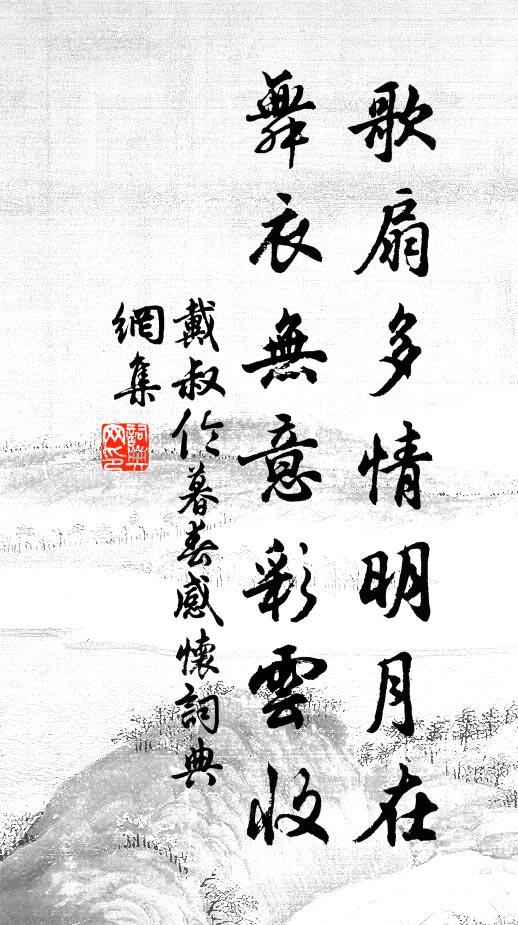 歌扇多情明月在
舞衣無意彩雲收
戴叔伦暮春感懷詞典
網集
詞典
网印